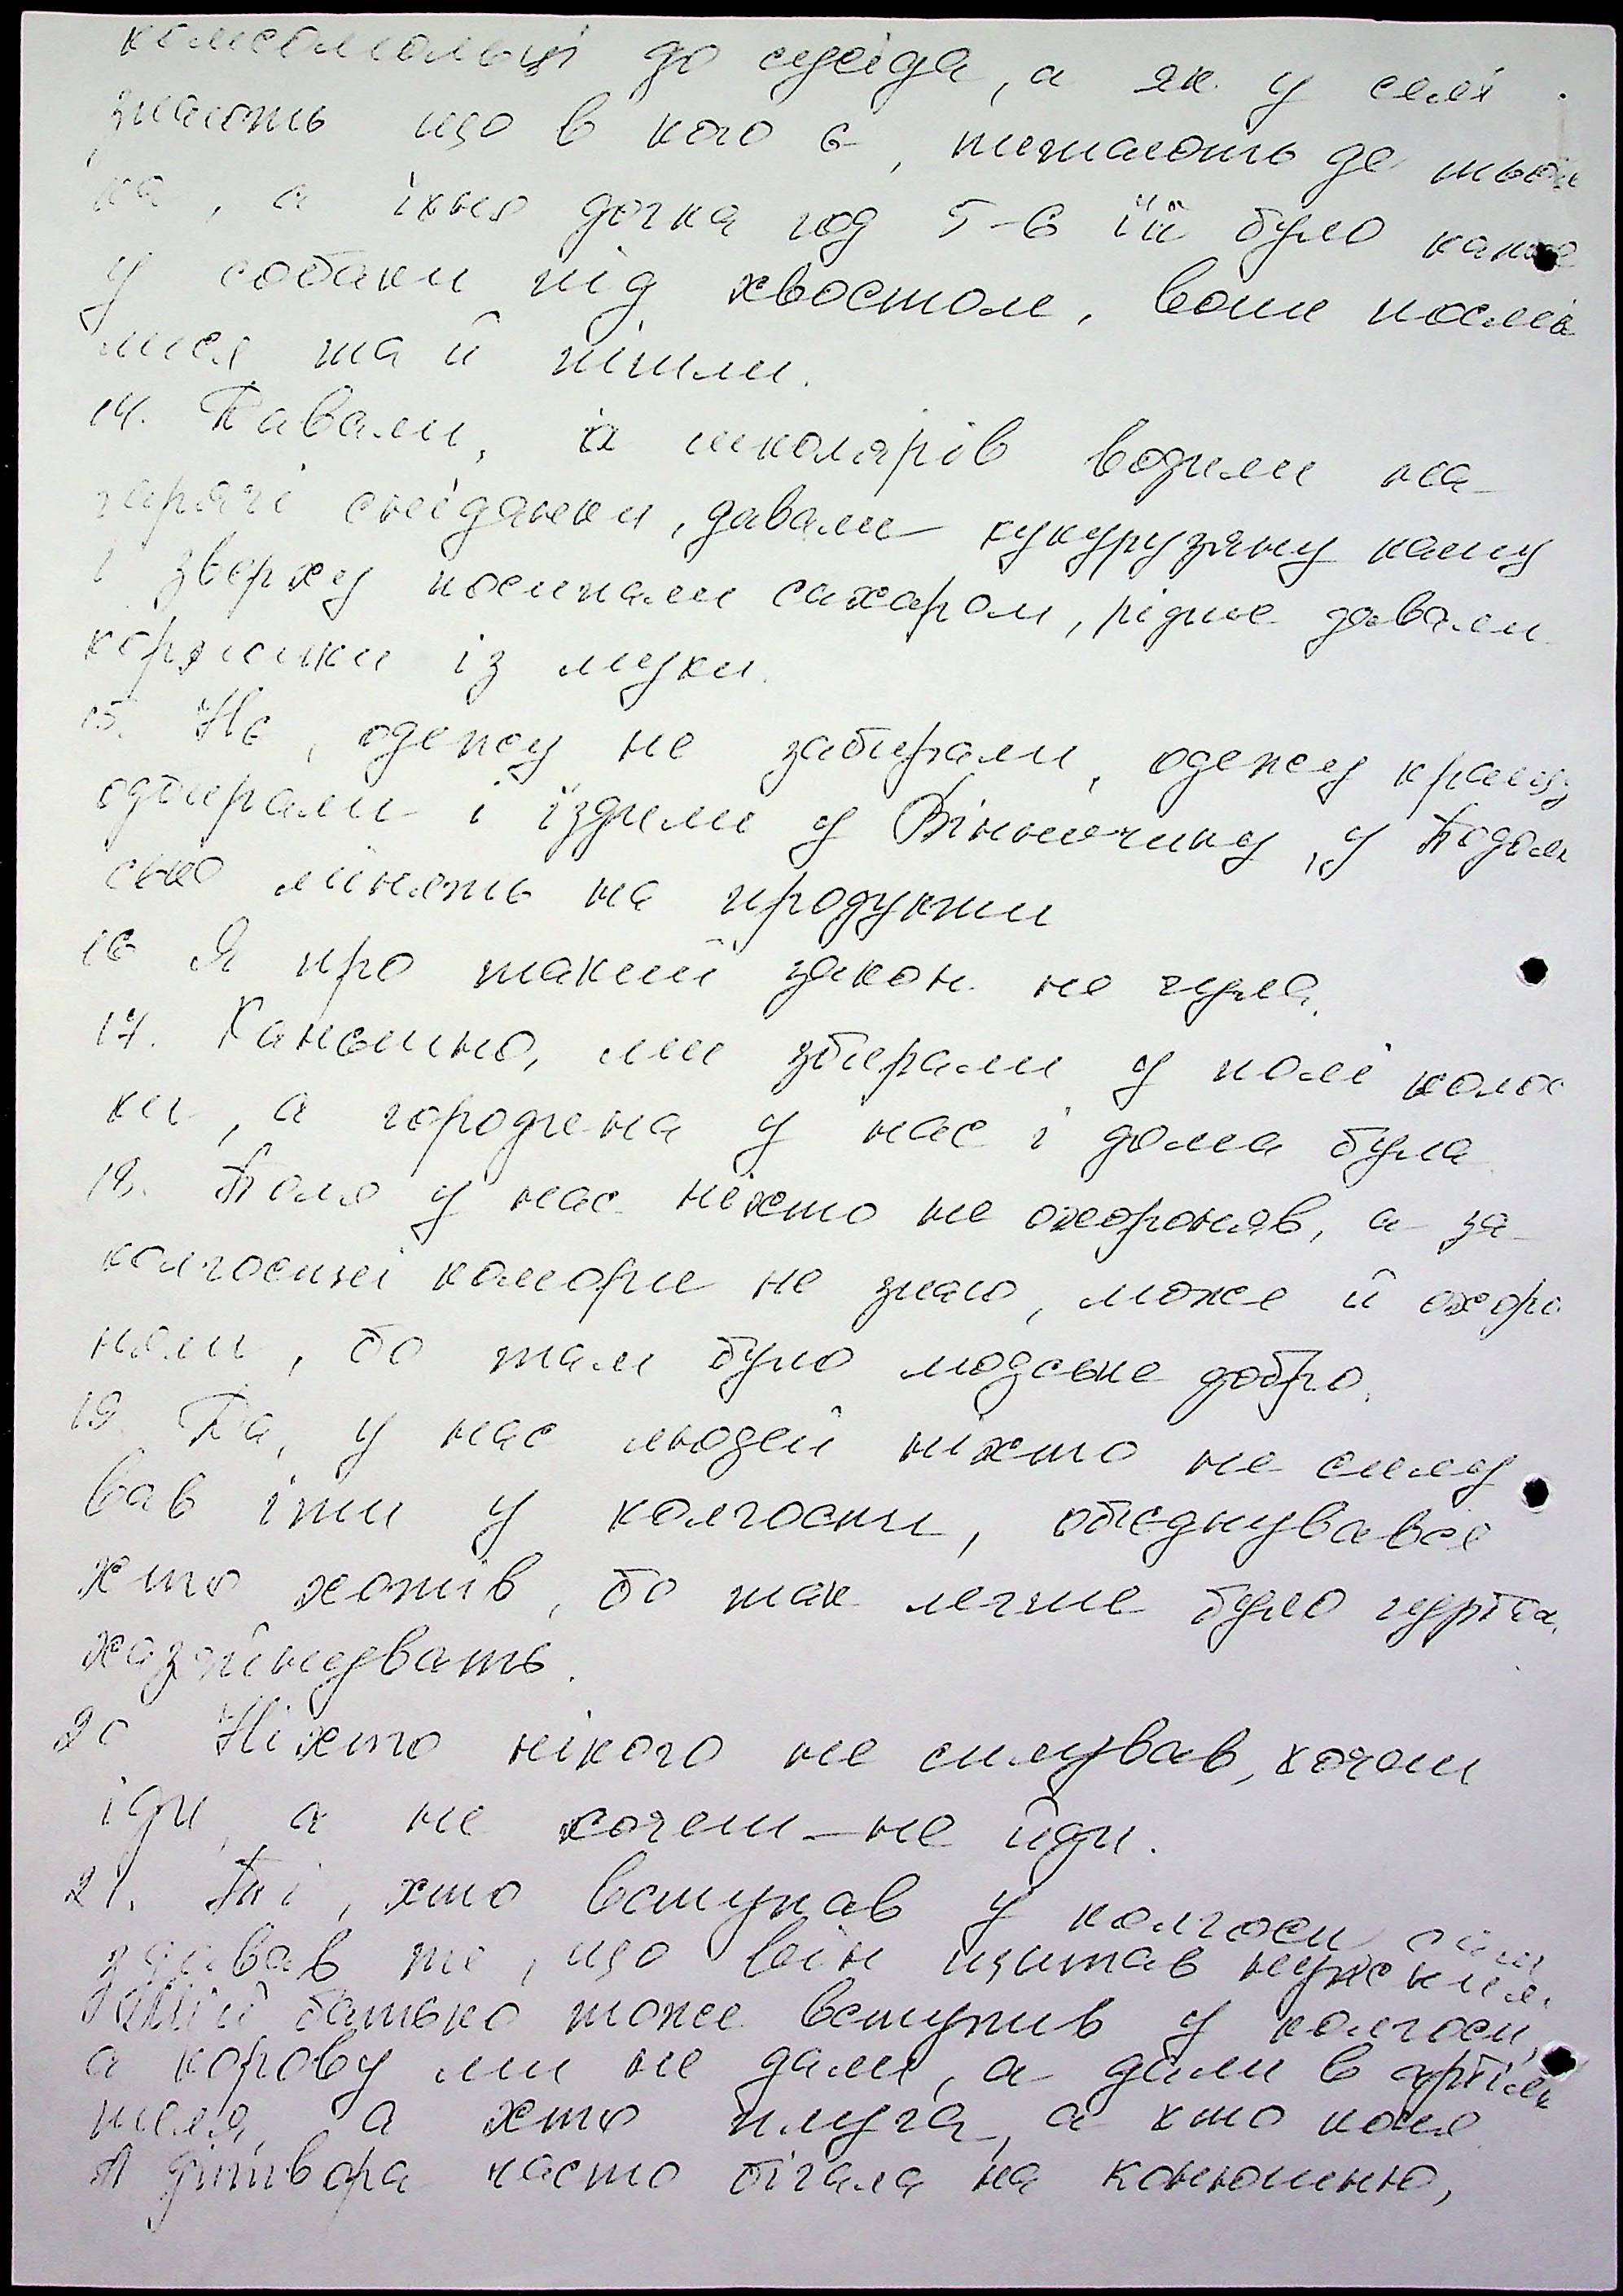 комсомольці до сусіда, а як у селі
знають що в кого є, питають де мьоді
ка, а їхня дочка год 5-6 їй було каже
у собаки під хвостом, вони посмія
лися та й пішли.
14. Давали, а школярів водили на
гарячі сніданки, давали кукурузяну кашу
і зверху посипали сахаром, рідше давали
коржики із муки.
15. Не, одежу не забирали, одежу кращу
одбирали і їздили у Вінничину, у Подоль
сько мінять на продукти
16 Я про такий закон не чула.
17. Канєшно, ми збирали у полі колос
ки, а городчена у нас і дома була
18. Поля у нас ніхто не охороняв, а за
колгоспні комори не знаю, може й охоро
няли, бо там було людське добро.
19 Да, у нас людей ніхто не силу
вав іти у колгоспи, обєднувався
хто хотів, бо так легше було гуртом
хазяйнувать.
20 Ніхто нікого не силував, хочеш
іди, а не хочеш-не йди.
21. Ті, хто вступав у колгосп
здавав те, що він щитав нужним.
Мій батько тоже вступив у колгосп,
а корову ми не дали, а дали в артіль
теля, а хто плуга, а хто коня
А дітвора часто бігала на конюшню,